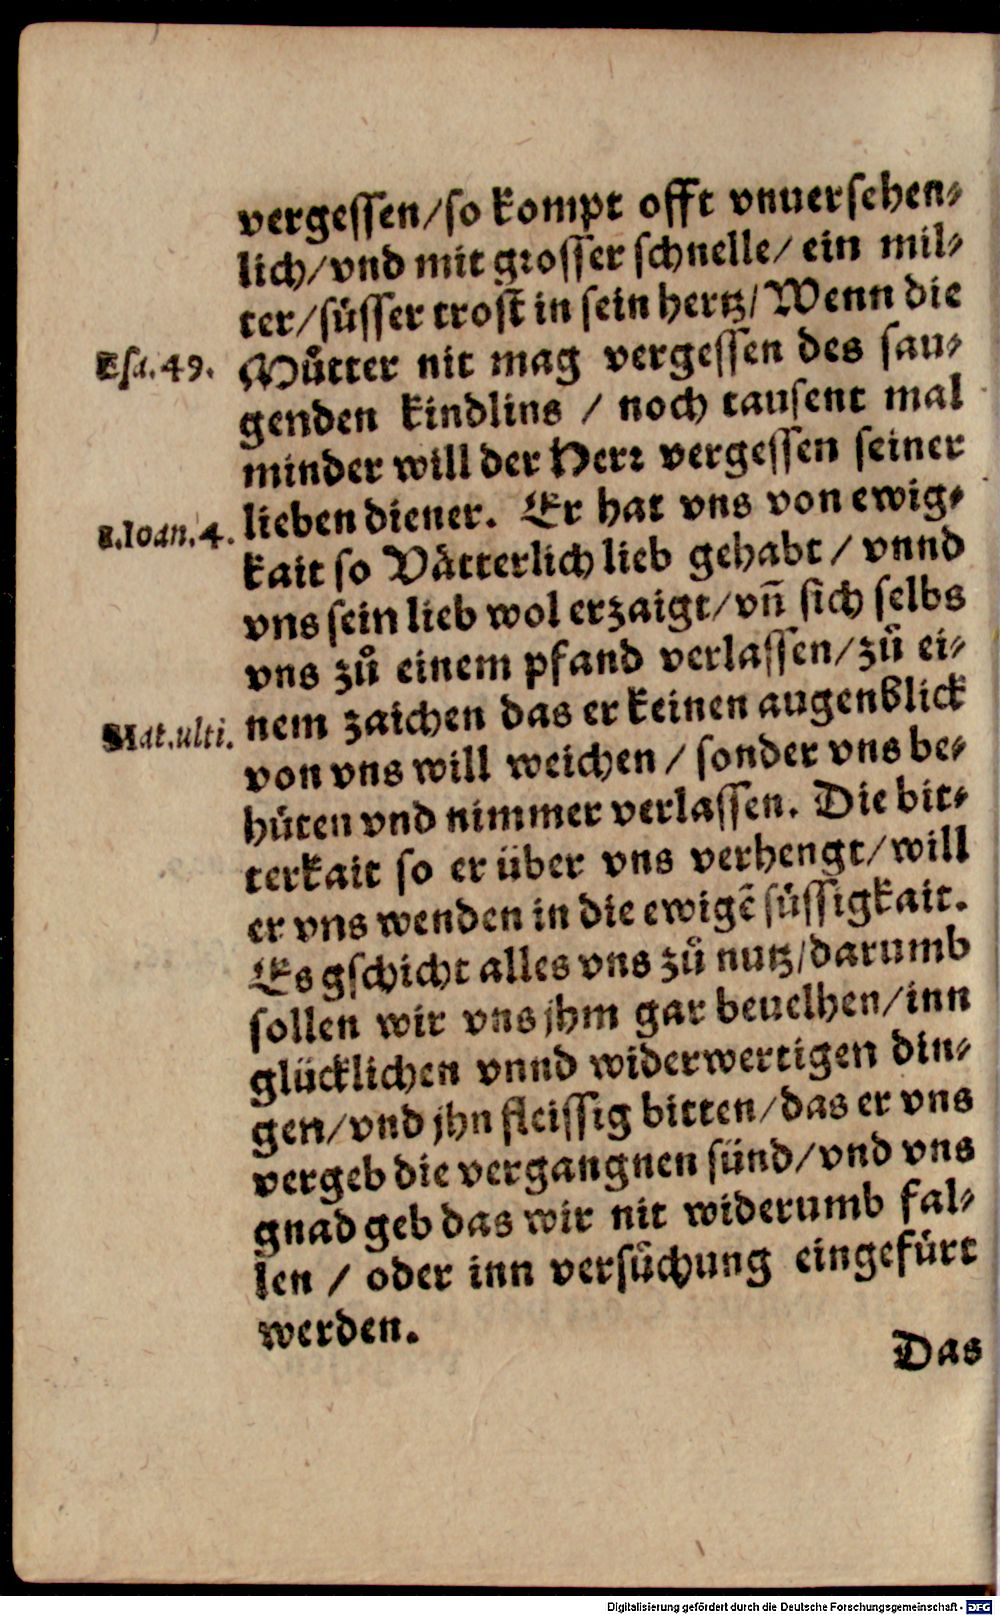 vergessen/so kompt offt vnuersehen⸗
lich/vnd mit grosser schnelle/ ein mil⸗
ter/süsser trost in sein hertz/Wenn die
Esa.49.
Můtter nit mag vergessen des sau⸗
genden kindlins / noch tausent mal
minder will der Herr vergessen seiner
1.Ioan.4.
lieben diener. Er hat vns von ewig⸗
kait so Vätterlich lieb gehabt / vnnd
vns sein lieb wol erzaigt/vñ sich selbs
vns zů einem pfand verlassen/zů ei⸗
Mat.ulti.
nem zaichen das er keinen augenblick
von vns will weichen / sonder vns be⸗
hüten vnd nimmer verlassen. Die bit⸗
terkait so er über vns verhengt/will
er vns wenden in die ewigē süssigkait.
Es gschicht alles vns zů nutz/darumb
sollen wir vns jhm gar beuelhen/inn
glücklichen vnnd widerwertigen din⸗
gen/vnd jhn fleissig bitten/das er vns
vergeb die vergangnen sünd/vnd vns
gnad geb das wir nit widerumb fal⸗
len / oder inn versůchung eingefürt
werden.
Das
Digitalisierung gefördert durch die Deutsche Forschungsgemeinschaft - DFG